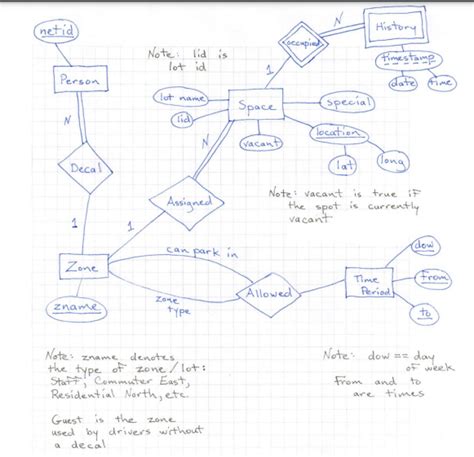 netid
Person
N
Decal
1
Note: lid is
lot id
lot name
lid
Space
special
vacant
location
lat
long
1
occupied
N
History
timestamp
date
time
N
Assigned
1
Note: vacant is true if
the spot is currently
vacant
Zone
zname
can park in
zone
type
Allowed
Time
Period
dow
from
to
Note: zname denotes
the type of zone/lot:
Staff, Commuter East,
Residential North, etc.
Guest is the zone
used by drivers without
a decal
Note: dow == day
of week
From and to
are times